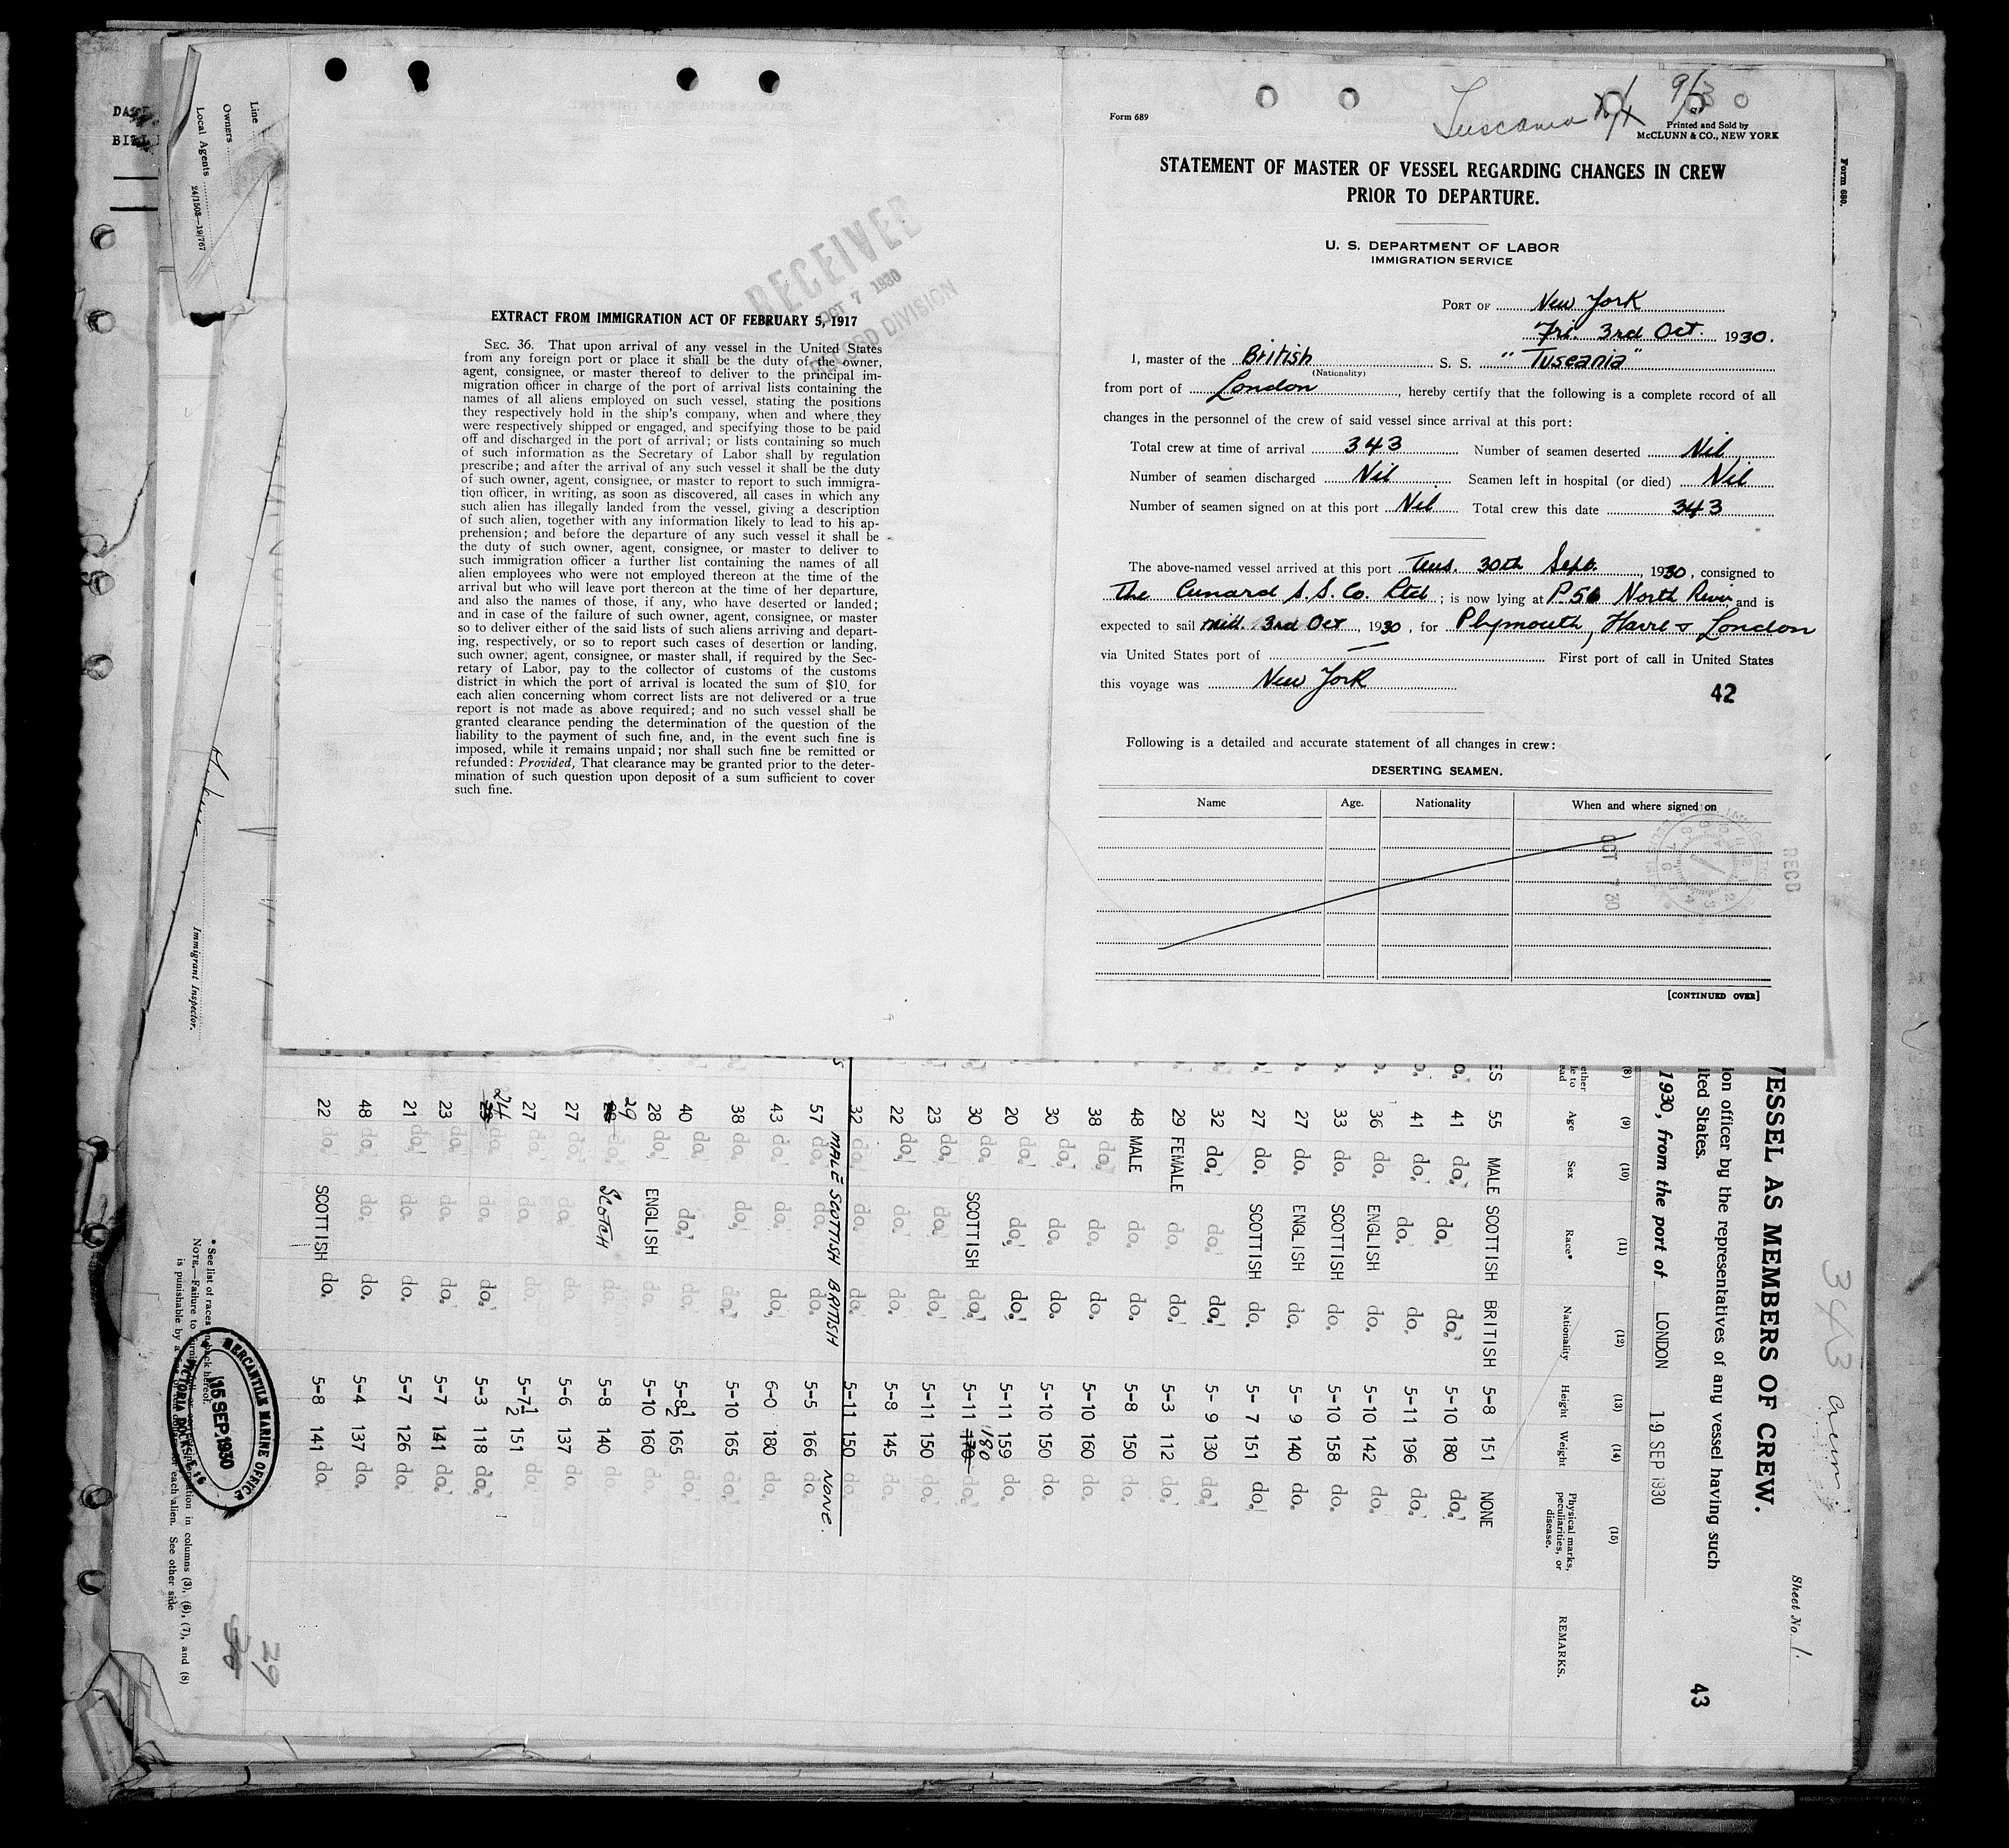 DATE
Line
Owners
Local Agents
24/1503—19/767
Immigrant Inspector.
EXTRACT FROM IMMIGRATION ACT OF FEBRUARY 5, 1917
SEC. 36. That upon arrival of any vessel in the United States
from any foreign port or place it shall be the duty of the owner,
agent, consignee, or master thereof to deliver to the principal im-
migration officer in charge of the port of arrival lists containing the
names of all aliens employed on such vessel, stating the positions
they respectively hold in the ship's company, when and where they
were respectively shipped or engaged, and specifying those to be paid
off and discharged in the port of arrival; or lists containing so much
of such information as the Secretary of Labor shall by regulation
prescribe; and after the arrival of any such vessel it shall be the duty
of such owner, agent, consignee, or master to report to such immigra-
tion officer, in writing, as soon as discovered, all cases in which any
such alien has illegally landed from the vessel, giving a description
of such alien, together with any information likely to lead to his ap-
prehension; and before the departure of any such vessel it shall be
the duty of such owner, agent, consignee, or master to deliver to
such immigration officer a further list containing the names of all
alien employees who were not employed thereon at the time of the
arrival but who will leave port thereon at the time of her departure,
and also the names of those, if any, who have deserted or landed;
and in case of the failure of such owner, agent, consignee, or master
so to deliver either of the said lists of such aliens arriving and depart-
ing, respectively, or so to report such cases of desertion or landing,
such owner, agent, consignee, or master shall, if required by the Sec-
retary of Labor, pay to the collector of customs of the customs
district in which the port of arrival is located the sum of $10 for
each alien concerning whom correct lists are not delivered or a true
report is not made as above required; and no such vessel shall be
granted clearance pending the determination of the question of the
liability to the payment of such fine, and, in the event such fine is
imposed, while it remains unpaid; nor shall such fine be remitted or
refunded: Provided, That clearance may be granted prior to the deter-
mination of such question upon deposit of a sum sufficient to cover
such fine.
RECEIVED
OCT 7 1930
RECORD DIVISION
Form 689
Tuscania
Printed and Sold by
McCLUNN & CO., NEW YORK
STATEMENT OF MASTER OF VESSEL REGARDING CHANGES IN CREW
PRIOR TO DEPARTURE.
U. S. DEPARTMENT OF LABOR
IMMIGRATION SERVICE
PORT OF New York
Fri. 3rd Oct. 1930.
I, master of the British S. S. "Tuscania"
(Nationality)
from port of London, hereby certify that the following is a complete record of all
changes in the personnel of the crew of said vessel since arrival at this port:
Total crew at time of arrival 343 Number of seamen deserted Nil
Number of seamen discharged Nil Seamen left in hospital (or died) Nil
Number of seamen signed on at this port Nil Total crew this date 343
The above-named vessel arrived at this port Tues. 30th Sept., 1930, consigned to
The Cunard S.S. Co. Ltd; is now lying at P.56 North River and is
expected to sail mid. 3rd Oct, 1930, for Plymouth, Havre & London
via United States port of — First port of call in United States
this voyage was New York
42
Following is a detailed and accurate statement of all changes in crew:
DESERTING SEAMEN.
Name Age. Nationality When and where signed on
RECD
OCT 7 30
[CONTINUED OVER]
Form 680.
VESSEL AS MEMBERS OF CREW.
Sheet No. 1.
343
43
ion officer by the representatives of any vessel having such
ited States.
1930, from the port of LONDON 19 SEP 1930
(8) (9) (10) (11) (12) (13) (14) (15)
Age Sex Race* Nationality Height Weight Physical marks, peculiarities, or disease. REMARKS.
55 MALE SCOTTISH BRITISH 5-8 151 NONE
41 do. do. do. 5-10 180 do.
41 do. do. do. 5-11 196 do.
36 do. ENGLISH do. 5-10 142 do.
33 do. SCOTTISH do. 5-10 158 do.
27 do. ENGLISH do. 5-9 140 do.
27 do. SCOTTISH do. 5-7 151 do.
32 do. do. do. 5-9 130 do.
29 FEMALE do. do. 5-3 112 do.
48 MALE do. do. 5-8 150 do.
38 do. do. do. 5-10 160 do.
30 do. do. do. 5-10 150 do.
20 do. do. do. 5-11 159 do.
30 do. SCOTTISH do. 5-11 170 180 do.
23 do. do. do. 5-11 150 do.
22 do. do. do. 5-8 145 do.
32 do. do. do. 5-11 150 do.
MALE SCOTTISH BRITISH NONE.
57 do. do. do. 5-5 166 do.
43 do. do. do. 6-0 180 do.
38 do. do. do. 5-10 165 do.
40 do. do. do. 5-8½ 165 do.
28 do. ENGLISH do. 5-10 160 do.
29 do. SCOTCH do. 5-8 140 do.
27 do. do. do. 5-6 137 do.
27 do. do. do. 5-7½ 151 do.
24 do. do. do. 5-3 118 do.
23 do. do. do. 5-7 141 do.
21 do. do. do. 5-7 126 do.
48 do. do. do. 5-4 137 do.
22 do. SCOTTISH do. 5-8 141 do.
* See list of races on back hereof.
MERCANTILE MARINE OFFICE
15 SEP 1930
VICTORIA DOCKS E 16
29